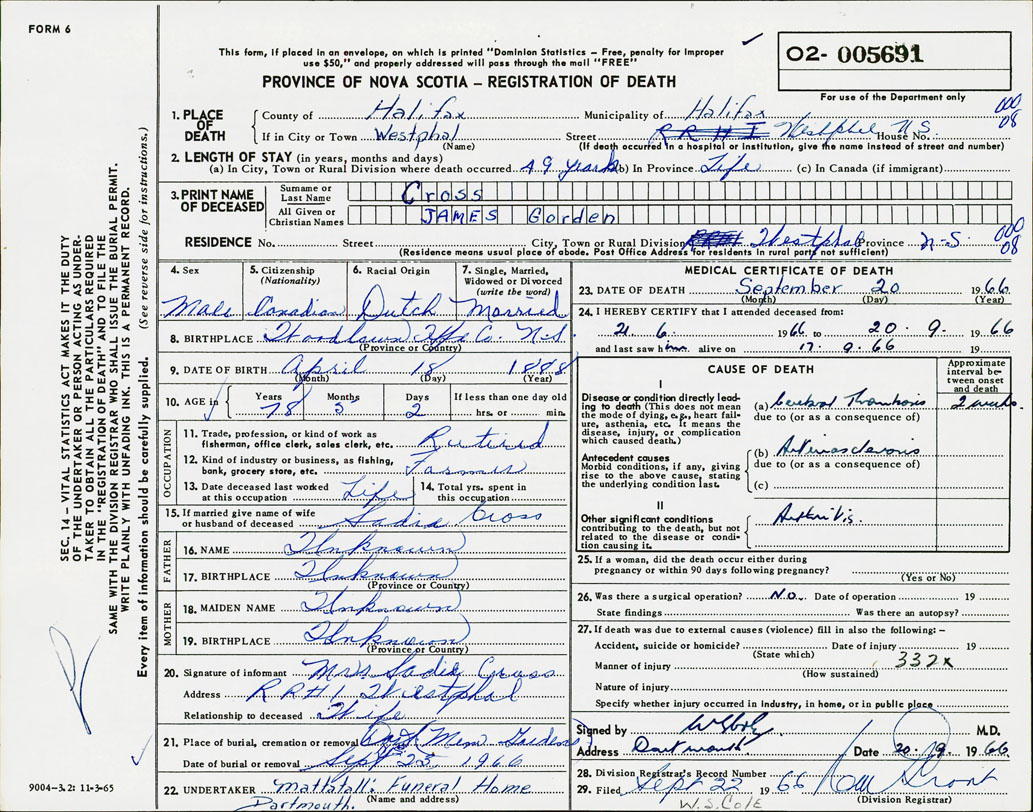 FORM 6
This form, if placed in an envelope, on which is printed "Dominion Statistics – Free, penalty for improper
use $50," and properly addressed will pass through the mail "FREE"
PROVINCE OF NOVA SCOTIA – REGISTRATION OF DEATH
02- 005691
For use of the Department only
000
08
1. PLACE OF DEATH
County of Halifax Municipality of Halifax
If in City or Town Westphal Street R R # 1 Westphal N.S. House No.
(Name) (If death occurred in a hospital or institution, give the name instead of street and number)
2. LENGTH OF STAY (in years, months and days)
(a) In City, Town or Rural Division where death occurred 49 years (b) In Province Life (c) In Canada (if immigrant)
3. PRINT NAME OF DECEASED
Surname or Last Name Cross
All Given or Christian Names JAMES Gorden
RESIDENCE No. Street City, Town or Rural Division Westphal Province N.S. 000
08
(Residence means usual place of abode. Post Office Address for residents in rural parts not sufficient)
4. Sex
Male
5. Citizenship
(Nationality)
Canadian
6. Racial Origin
Dutch
7. Single, Married,
Widowed or Divorced
(write the word)
Married
8. BIRTHPLACE Woodlawn Hfx Co. N.S
(Province or Country)
9. DATE OF BIRTH April 18 1888
(Month) (Day) (Year)
10. AGE in Years Months Days If less than one day old
78 5 2 hrs. or min.
OCCUPATION
11. Trade, profession, or kind of work as
fisherman, office clerk, sales clerk, etc. Retired
12. Kind of industry or business, as fishing,
bank, grocery store, etc. Farmer
13. Date deceased last worked
at this occupation Life
14. Total yrs. spent in
this occupation
15. If married give name of wife
or husband of deceased Sadie Cross
FATHER
16. NAME Unknown
17. BIRTHPLACE Unknown
(Province or Country)
MOTHER
18. MAIDEN NAME Unknown
19. BIRTHPLACE Unknown
(Province or Country)
20. Signature of informant Mrs Sadie Cross
Address R R # 1 Westphal
Relationship to deceased Wife
21. Place of burial, cremation or removal Dart Mem Gardens
Date of burial or removal Sept 23 1966
22. UNDERTAKER Mattatall Funeral Home
Dartmouth. (Name and address)
MEDICAL CERTIFICATE OF DEATH
23. DATE OF DEATH September 20 1966
(Month) (Day) (Year)
24. I HEREBY CERTIFY that I attended deceased from:
21. 6. 1966 to 20. 9. 1966
and last saw him alive on 17. 9. 66 19
CAUSE OF DEATH
Approximate
interval be-
tween onset
and death
I
Disease or condition directly lead-
ing to death (This does not mean
the mode of dying, e.g., heart fail-
ure, asthenia, etc. It means the
disease, injury, or complication
which caused death.)
(a) Cerebral Thrombosis 2 weeks.
due to (or as a consequence of)
Antecedent causes
Morbid conditions, if any, giving
rise to the above cause, stating
the underlying condition last.
(b) Arteriosclerosis
due to (or as a consequence of)
(c)
II
Other significant conditions
contributing to the death, but not
related to the disease or condi-
tion causing it.
Arthritis.
25. If a woman, did the death occur either during
pregnancy or within 90 days following pregnancy?
(Yes or No)
26. Was there a surgical operation? N.O. Date of operation 19
State findings Was there an autopsy?
27. If death was due to external causes (violence) fill in also the following: –
Accident, suicide or homicide? Date of injury 19
(State which)
Manner of injury 332x
(How sustained)
Nature of injury
Specify whether injury occurred in industry, in home, or in public place
Signed by M.D.
Address Dartmouth Date 20. 9. 1966
28. Division Registrar's Record Number
29. Filed Sept 22 1966
W.S. COLE (Division Registrar)
SEC. 14 – VITAL STATISTICS ACT MAKES IT THE DUTY
OF THE UNDERTAKER OR PERSON ACTING AS UNDER-
TAKER TO OBTAIN ALL THE PARTICULARS REQUIRED
IN THE "REGISTRATION OF DEATH" AND TO FILE THE
SAME WITH THE DIVISION REGISTRAR WHO SHALL ISSUE THE BURIAL PERMIT.
WRITE PLAINLY WITH UNFADING INK. THIS IS A PERMANENT RECORD.
Every item of information should be carefully supplied. (See reverse side for instructions.)
9004–3.2: 11-3-65